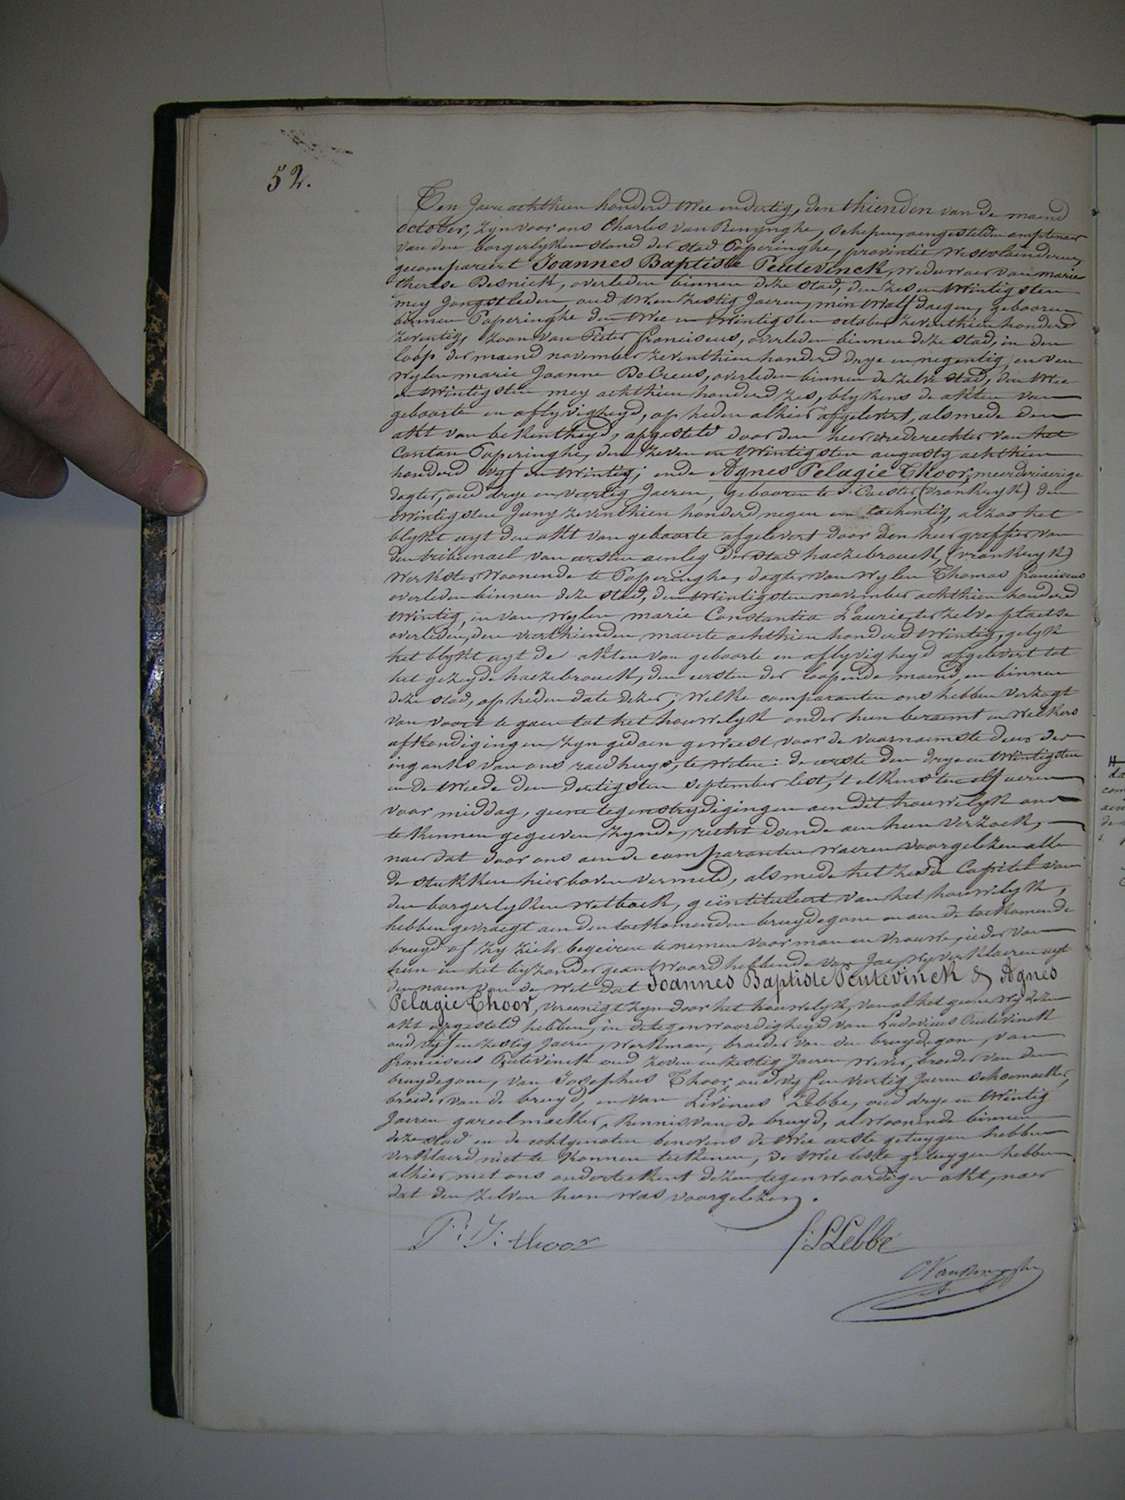 52.
Ten Jaere achthien honderd twee en dertig, den thienden van de maend
october, zyn voor ons Charles van Renynghe, schepen aengestelden amptenaer
van den borgerlyken stand der stad Poperinghe, provintie Westvlaenderen,
gecompareert Joannes Baptiste Peutevinck, weduwaer van marie
therese Desnick, overleden binnen deze stad, den zes en twintigsten
mey jongstleden, oud twee en zestig Jaeren, min twalf daegen, gebooren
binnen Poperinghe den twee en twintigsten october zeventhien honderd
zeventig, zoon van Pieter franciscus, overleden binnen deze stad, in den
loop der maend november zeventhien honderd drye en negentig, en van
wylen marie Joanne DeCreus, overleden binnen de zelve stad, den twee
en twintigsten mey achthien honderd zes, blykens de akten van
geboorte en aflyvigheyd, op heden alhier afgelevert, alsmede den
akt van bekentheyd, opgesteld door den heer vrederechter van het
Canton Poperinghe, den zeven en twintigsten augusty achthien
honderd vyf en twintig; ende Agnes Pelagie Thoor, meerderjaerige
dogter, oud drye en veertig Jaeren, gebooren te (Vrankryk) den
twintigsten Juny zeventhien honderd negen en tachentig, alzoo het
blykt uyt den akt van geboorte afgelevert door den heer greffier van
den tribunael van eersten aenleg der stad hazebrouck, (vrankryk)
werkster woonende te Poperinghe, dogter van wylen Thomas franciscus
overleden binnen deze stad, den twintigsten november achthien honderd
twintig, en van wylen marie Constantia Laurie, ter zelve plaetse
overleden, den vierthienden maerte achthien honderd twintig, gelyk
het blykt uyt de akten van geboorte en aflyvigheyd afgelevert tot
het gezeyde haezebrouck, den eersten der loopende maend, en binnen
deze stad, op heden date dezer; welke comparanten ons hebben verzogt
van voort te gaen tot het houwelyk onder hun beraemt en welkers
afkondigingen zyn gedaen geweest voor de voornaemste deur der
ingank van ons raedhuys, te weten: de eerste den drye en twintigsten
en de tweede den dertigsten september lest, telkens ten elf ueren
voor middag, geene tegenstrydigingen aen dit houwelyk ons
te kennen gegeven zynde, recht doende aen hun verzoek,
naer dat door ons aen de comparanten waeren voorgelezen alle
de stukken hier boven vermeld, alsmede het zesde Capittel van
den borgerlyken wetboek, geïntituleert van het houwelyk,
hebben gevraegt aen den toekomenden bruydegom en aen de toekomende
bruyd of zy zich begeiren te nemen voor man en vrouwe, ieder van
hun in het byzonder geantwoord hebbende van Jae, wy verklaeren uyt
den naem van de wet dat Joannes Baptiste Peutevinck & Agnes
Pelagie Thoor, vereenigt zyn door het houwelyk, van al het geene wy dezen
akt opgesteld hebben, in de tegenwoordigheyd van Ludovicus Peutevinck
oud vyf en zestig Jaeren, werkman, broeder van den bruydegom, van
franciscus Peutevinck oud zeven en zestig Jaeren wever, broeder van den
bruydegom, van Josephus Thoor, oud vyf en veertig Jaeren schoemaeker,
broeder van de bruyd, en van Livinus Lebbe, oud drye en twintig
Jaeren gareelmaeker, kennis van de bruyd, al woonende binnen
deze stad en de echtgenoten benevens de twee eerste getuygen hebben
verklaerd niet te konnen teekenen, de twee leste getuygen hebben
alhier met ons onderteekent dezen tegenwoordigen akt, naer
dat den zelven hun was voorgelezen.
P: J: thoor L Lebbe